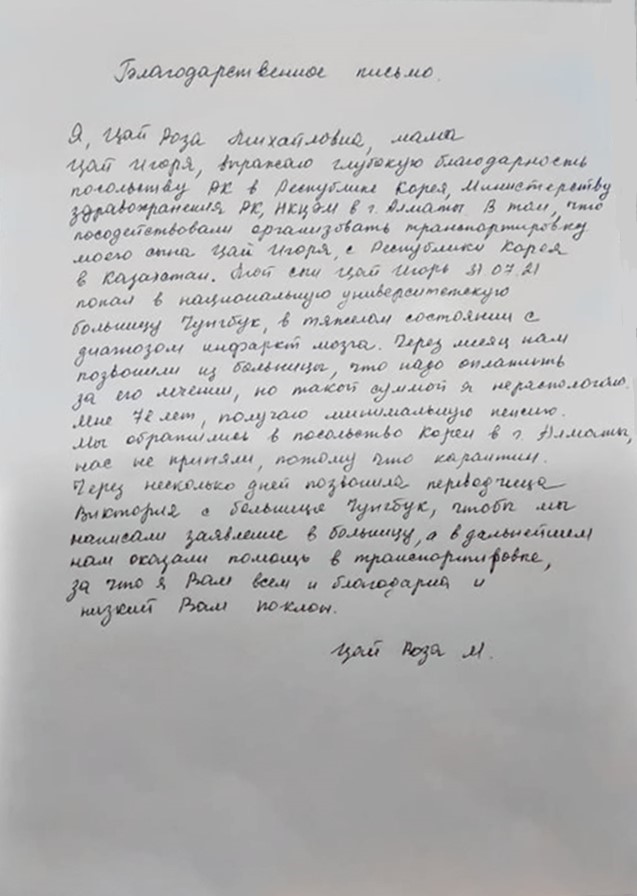 Благодарственное письмо.
Я, Цай Роза Михайловна, мама
Цай Игоря, выражаю глубокую благодарность
посольству РК в Республике Корея, Министерству
здравохранения РК, НКЦЭМ в г. Алматы. В том, что
посодействовали организовать транспортировку
моего сына Цай Игоря, с Республики Корея
в Казахстан. Мой сын Цай Игорь 31 07.21
попал в национальную университетскую
больницу Чунгбук, в тяжелом состоянии с
диагнозом инфаркт мозга. Через месяц нам
позвонили из больницы, что надо оплатить
за его лечении, но такой суммой я нерасполагаю.
Мне 72 лет, получаю минимальную пенсию.
Мы обратились в посольство Кореи в г. Алматы,
нас не приняли, потому что карантин.
Через несколько дней позвонила переводчица
Виктория с больнице Чунгбук, чтобы мы
написали заявление в больницу, а в дальнейшем
нам оказали помощь в транспортировке,
за что я Вам всем и благодарна и
низкий Вам поклон.
Цай Роза М.